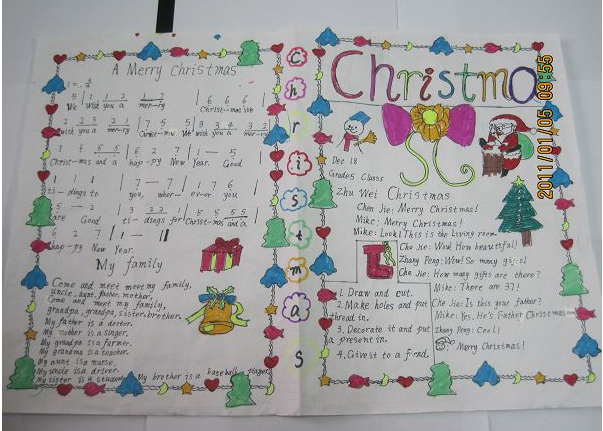 A Merry Christmas
5 | 1 1 2 1 7
We Wish you a mer-ry
6 6 6
Christ-mas We
wish you a mer-ry Christ-mas We wish you a mer-ry
Christ-mas and a hap-py New Year. Good
ti-dings to you, wher-ev-er you
are Good ti-dings for Christ-mas and a
6 2 7 | 1
hap-py New Year.
My family
Come and meet meet my family,
uncle, aunt, father, mother.
Come and meet my family,
grandpa, grandpa, sister, brother.
My father is a doctor.
My mother is a singer,
My grandpa is a farmer.
My grandma is a teacher.
My aunt is a nurse.
My uncle is a driver.
My sister is a student
My brother is a baseball player
Christmas
Christma
2011/01/05 09:55
Dec 18
Grade5 Class5
Zhu Wei Christmas
Chen Jie: Merry Christmas!
Mike: Merry Christmas!
Mike: Look! This is the living room.
Che Jie: Wow! How beautiful!
Zhang Peng: Wow! So many gifts!
Che Jie: How many gifts are there?
Mike: There are 37!
Che Jie: Is this your father?
Mike: Yes. He's Father Christmas
Zhang Peng: Cool!
Merry Christmas!
1. Draw and cut.
2. Make holes and put
thread in.
3. Decorate it and put
a present in.
4. Give it to a